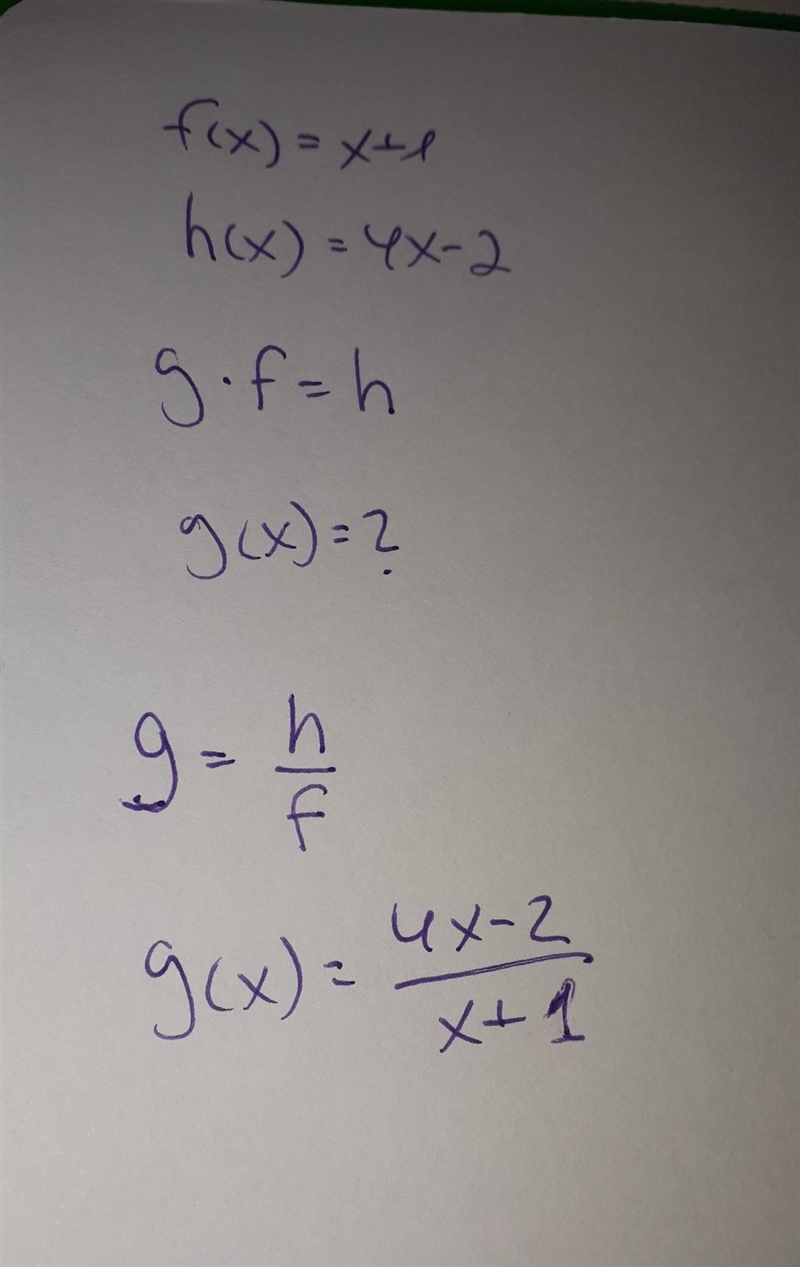 f(x) = x+1
h(x) = 4x-2
g·f = h
g(x) = ?
g = h/f
g(x) = 4x-2/x+1